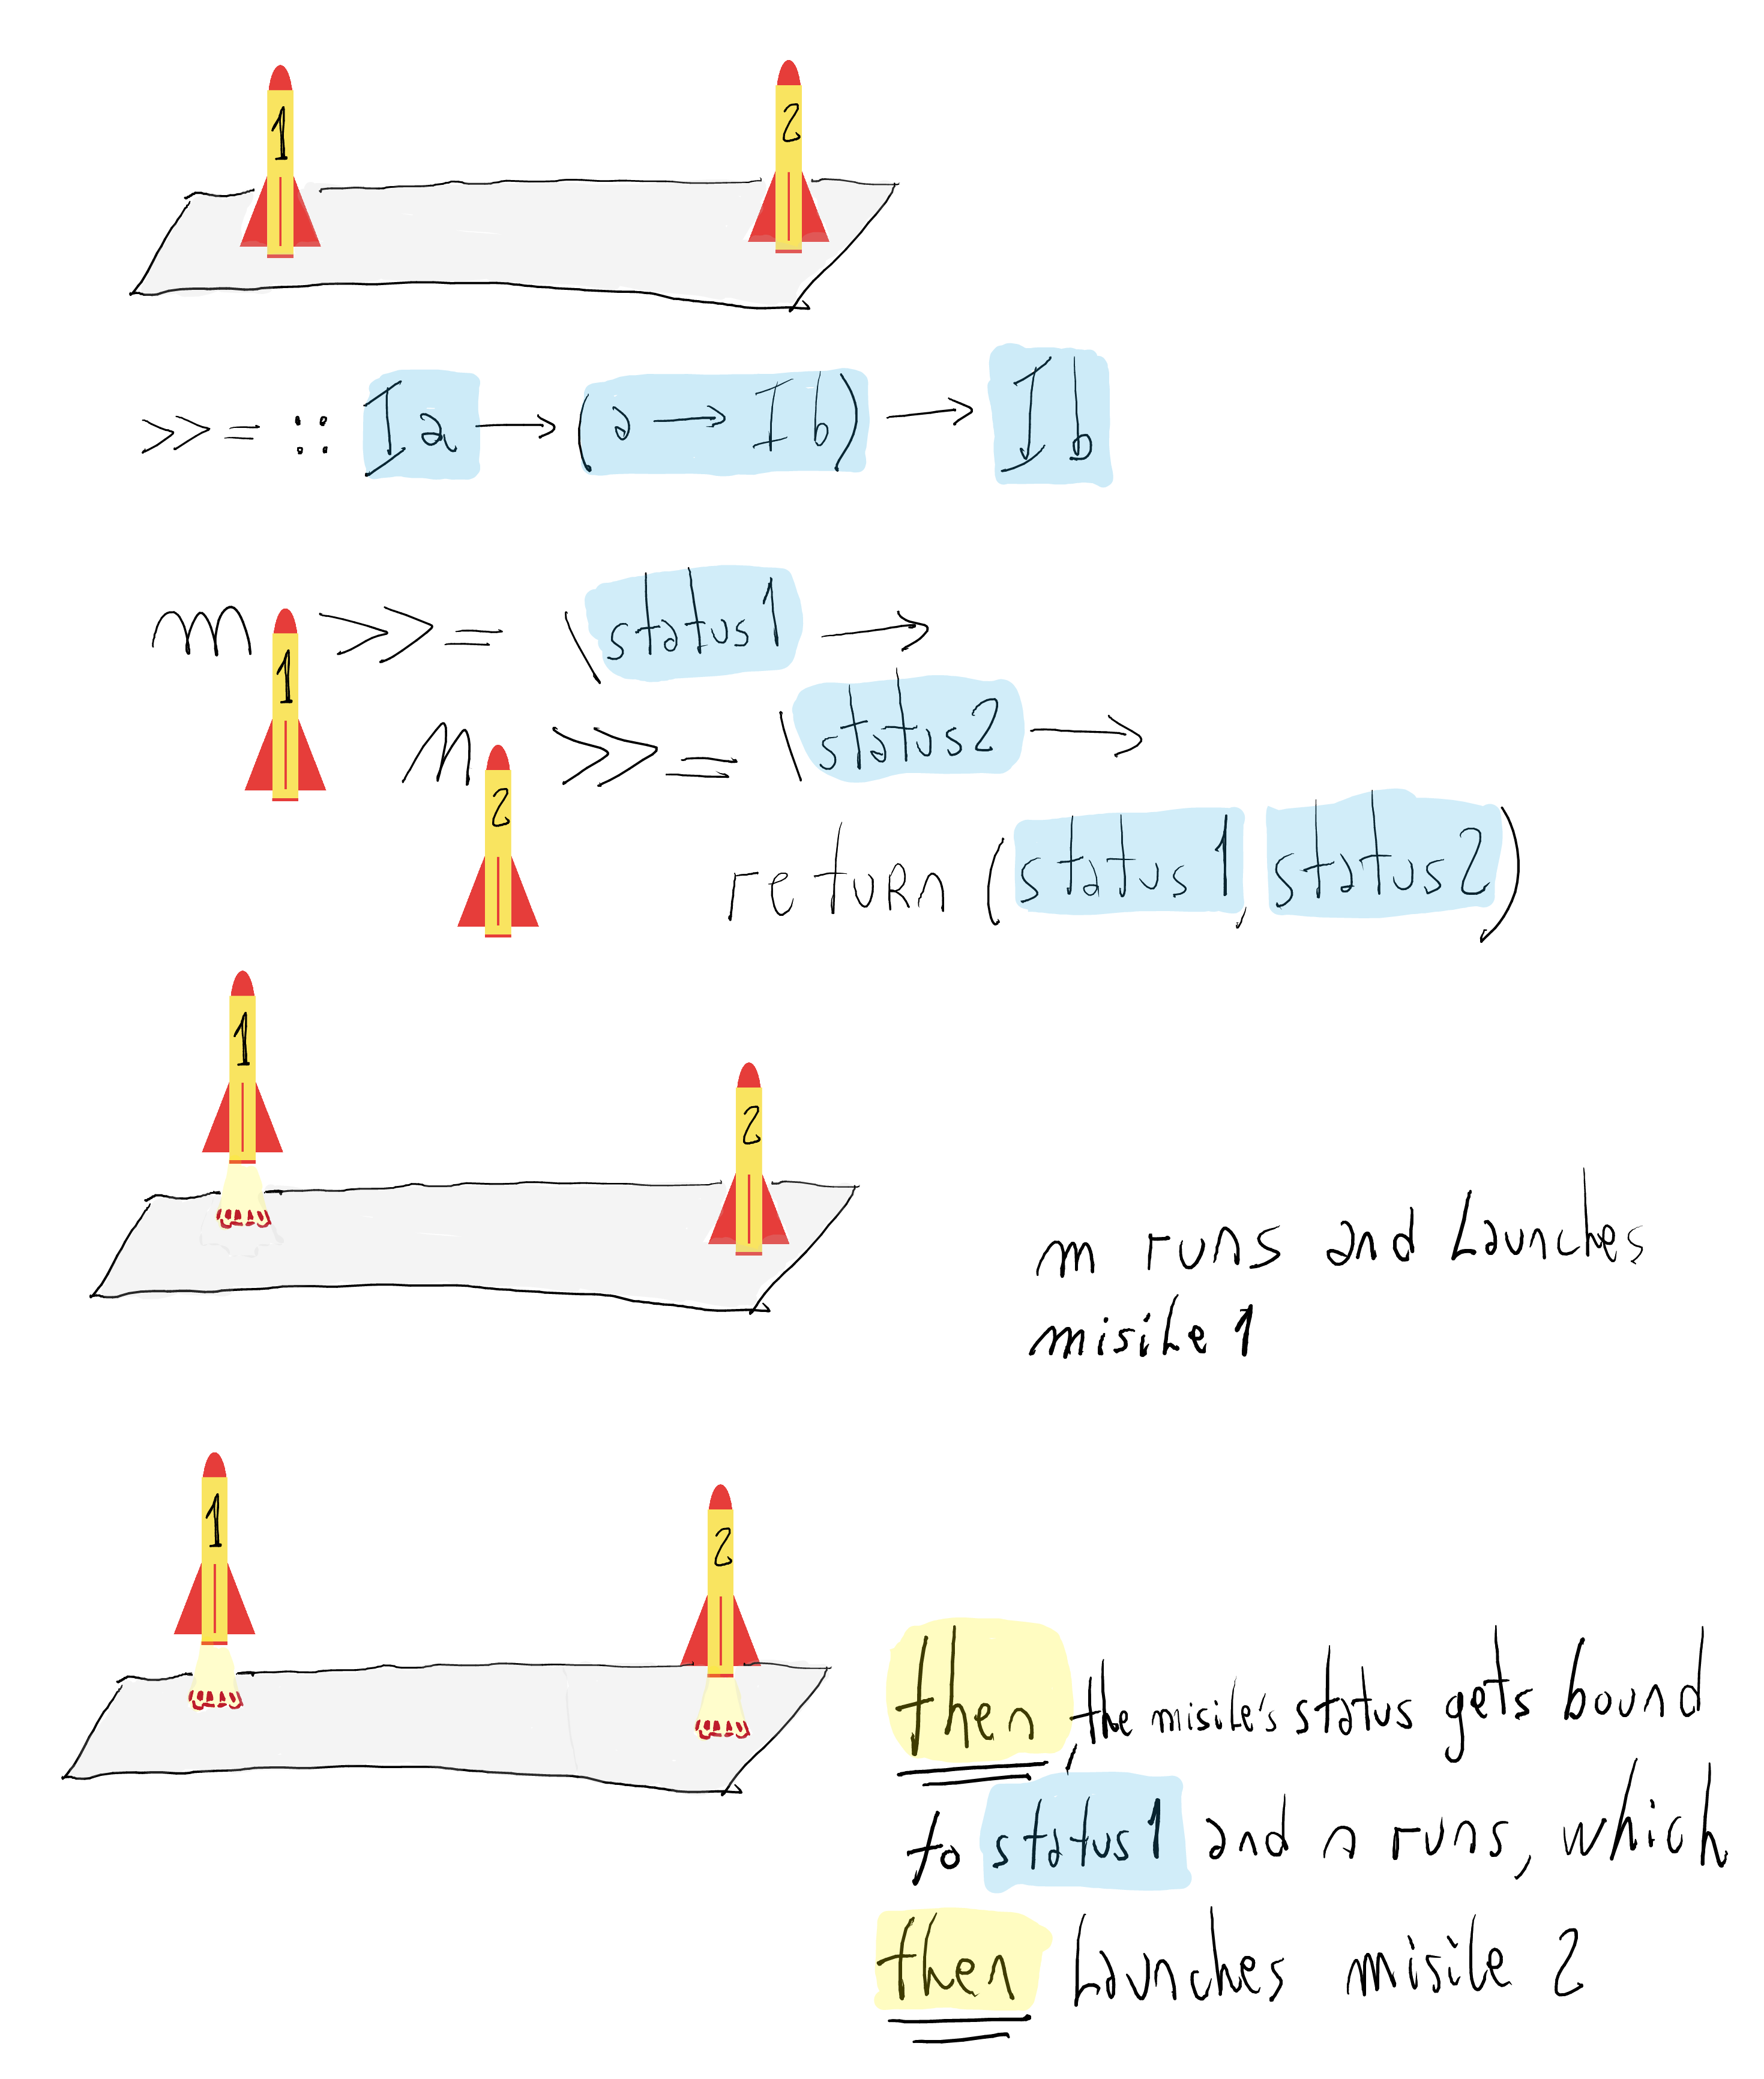 1 2
>>= :: I a → (a → I b) → I b
m 1 >>= \status1 →
n 2 >>= \status2 →
return (status1, status2)
1
2
m runs and launches
misile 1
1
2
then, the misile's status gets bound
to status1 and n runs, which
then launches misile 2